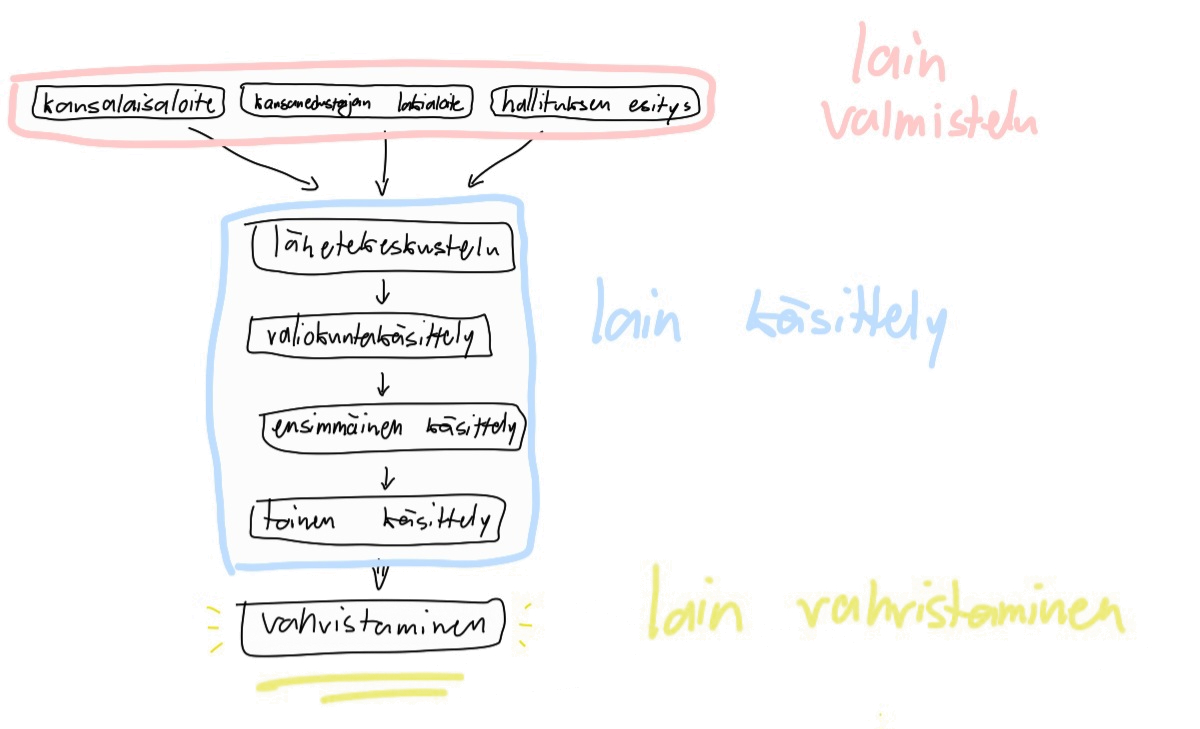 kansalaisaloite
kansanedustajan lakialoite
hallituksen esitys
lain
valmistelu
lähetekeskustelu
valiokuntakäsittely
lain käsittely
ensimmäinen käsittely
toinen käsittely
vahvistaminen
lain vahvistaminen